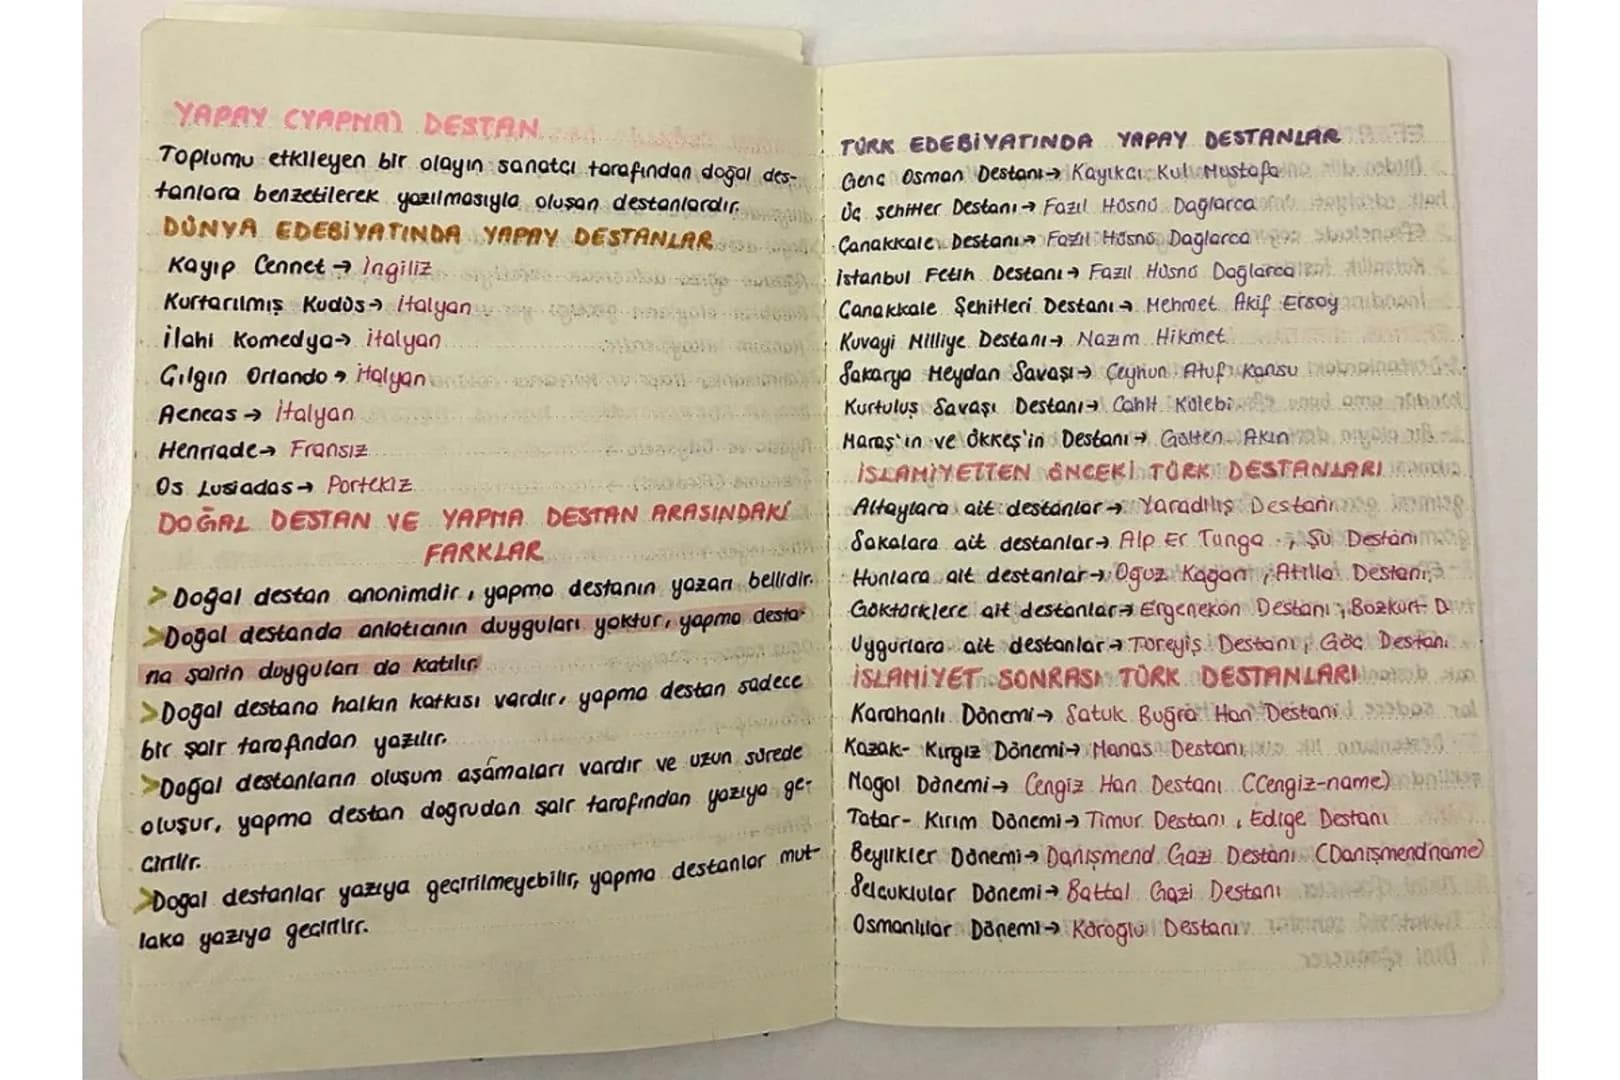 YAPAY (YAPMA) DESTAN
Toplumu etkileyen bir olayın sanatçı tarafından doğal des-
tanlara benzetilerek yazılmasıyla oluşan destanlardır.
DÜNYA EDEBİYATINDA YAPAY DESTANLAR
Kayıp Cennet → İngiliz
Kurtarılmış Kudüs → italyan
İlahi Komedya → italyan
Çılgın Orlando → italyan
Aeneas → İtalyan
Henriade → Fransız
Os Lusiadas → Portekiz
DOĞAL DESTAN VE YAPMA DESTAN ARASINDAKİ
FARKLAR
> Doğal destan anonimdir, yapma destanın yazarı bellidir.
> Doğal destanda anlatıcının duyguları yoktur, yapma desta-
na şairin duyguları da katılır.
> Doğal destana halkın katkısı vardır, yapma destan sadece
bir şair tarafından yazılır.
> Doğal destanların oluşum aşamaları vardır ve uzun sürede
oluşur, yapma destan doğrudan şair tarafından yazıya ge-
çirilir.
> Doğal destanlar yazıya geçirilmeyebilir, yapma destanlar mut-
laka yazıya geçirilir.
TÜRK EDEBİYATINDA YAPAY DESTANLAR
Genç Osman Destanı → Kayıkçı Kul Mustafa
Üç şehitler Destanı → Fazıl Hüsnü Dağlarca
Çanakkale Destanı → Fazıl Hüsnü Dağlarca
istanbul Fetih Destanı → Fazıl Hüsnü Dağlarca
Çanakkale Şehitleri Destanı → Mehmet Akif Ersoy
Kuvayi Milliye Destanı → Nazım Hikmet
Sakarya Meydan Savaşı → Ceyhun Atuf Kansu
Kurtuluş Savaşı Destanı → Cahit Külebi
Maraş'ın ve Ökkeş'in Destanı → Gülten Akın
İSLAMİYETTEN ÖNCEKİ TÜRK DESTANLARI
Altaylara ait destanlar → Yaradılış Destanı
Sakalara ait destanlar → Alp Er Tunga , Şu Destanı
Hunlara ait destanlar → Oğuz Kağan , Atilla Destanı
Göktürklere ait destanlar → Ergenekon Destanı , Bozkurt D
Uygurlara ait destanlar → Türeyiş Destanı , Göç Destanı
İSLAMİYET SONRASI TÜRK DESTANLARI
Karahanlı Dönemi → Satuk Buğra Han Destanı
Kazak- Kırgız Dönemi → Manas Destanı
Mogol Dönemi → Cengiz Han Destanı (Cengiz-name)
Tatar- Kırım Dönemi → Timur Destanı , Edige Destanı
Beylikler Dönemi → Danişmend Gazi Destanı (Danişmendname)
Selçuklular Dönemi → Battal Gazi Destanı
Osmanlılar Dönemi → Köroğlu Destanı